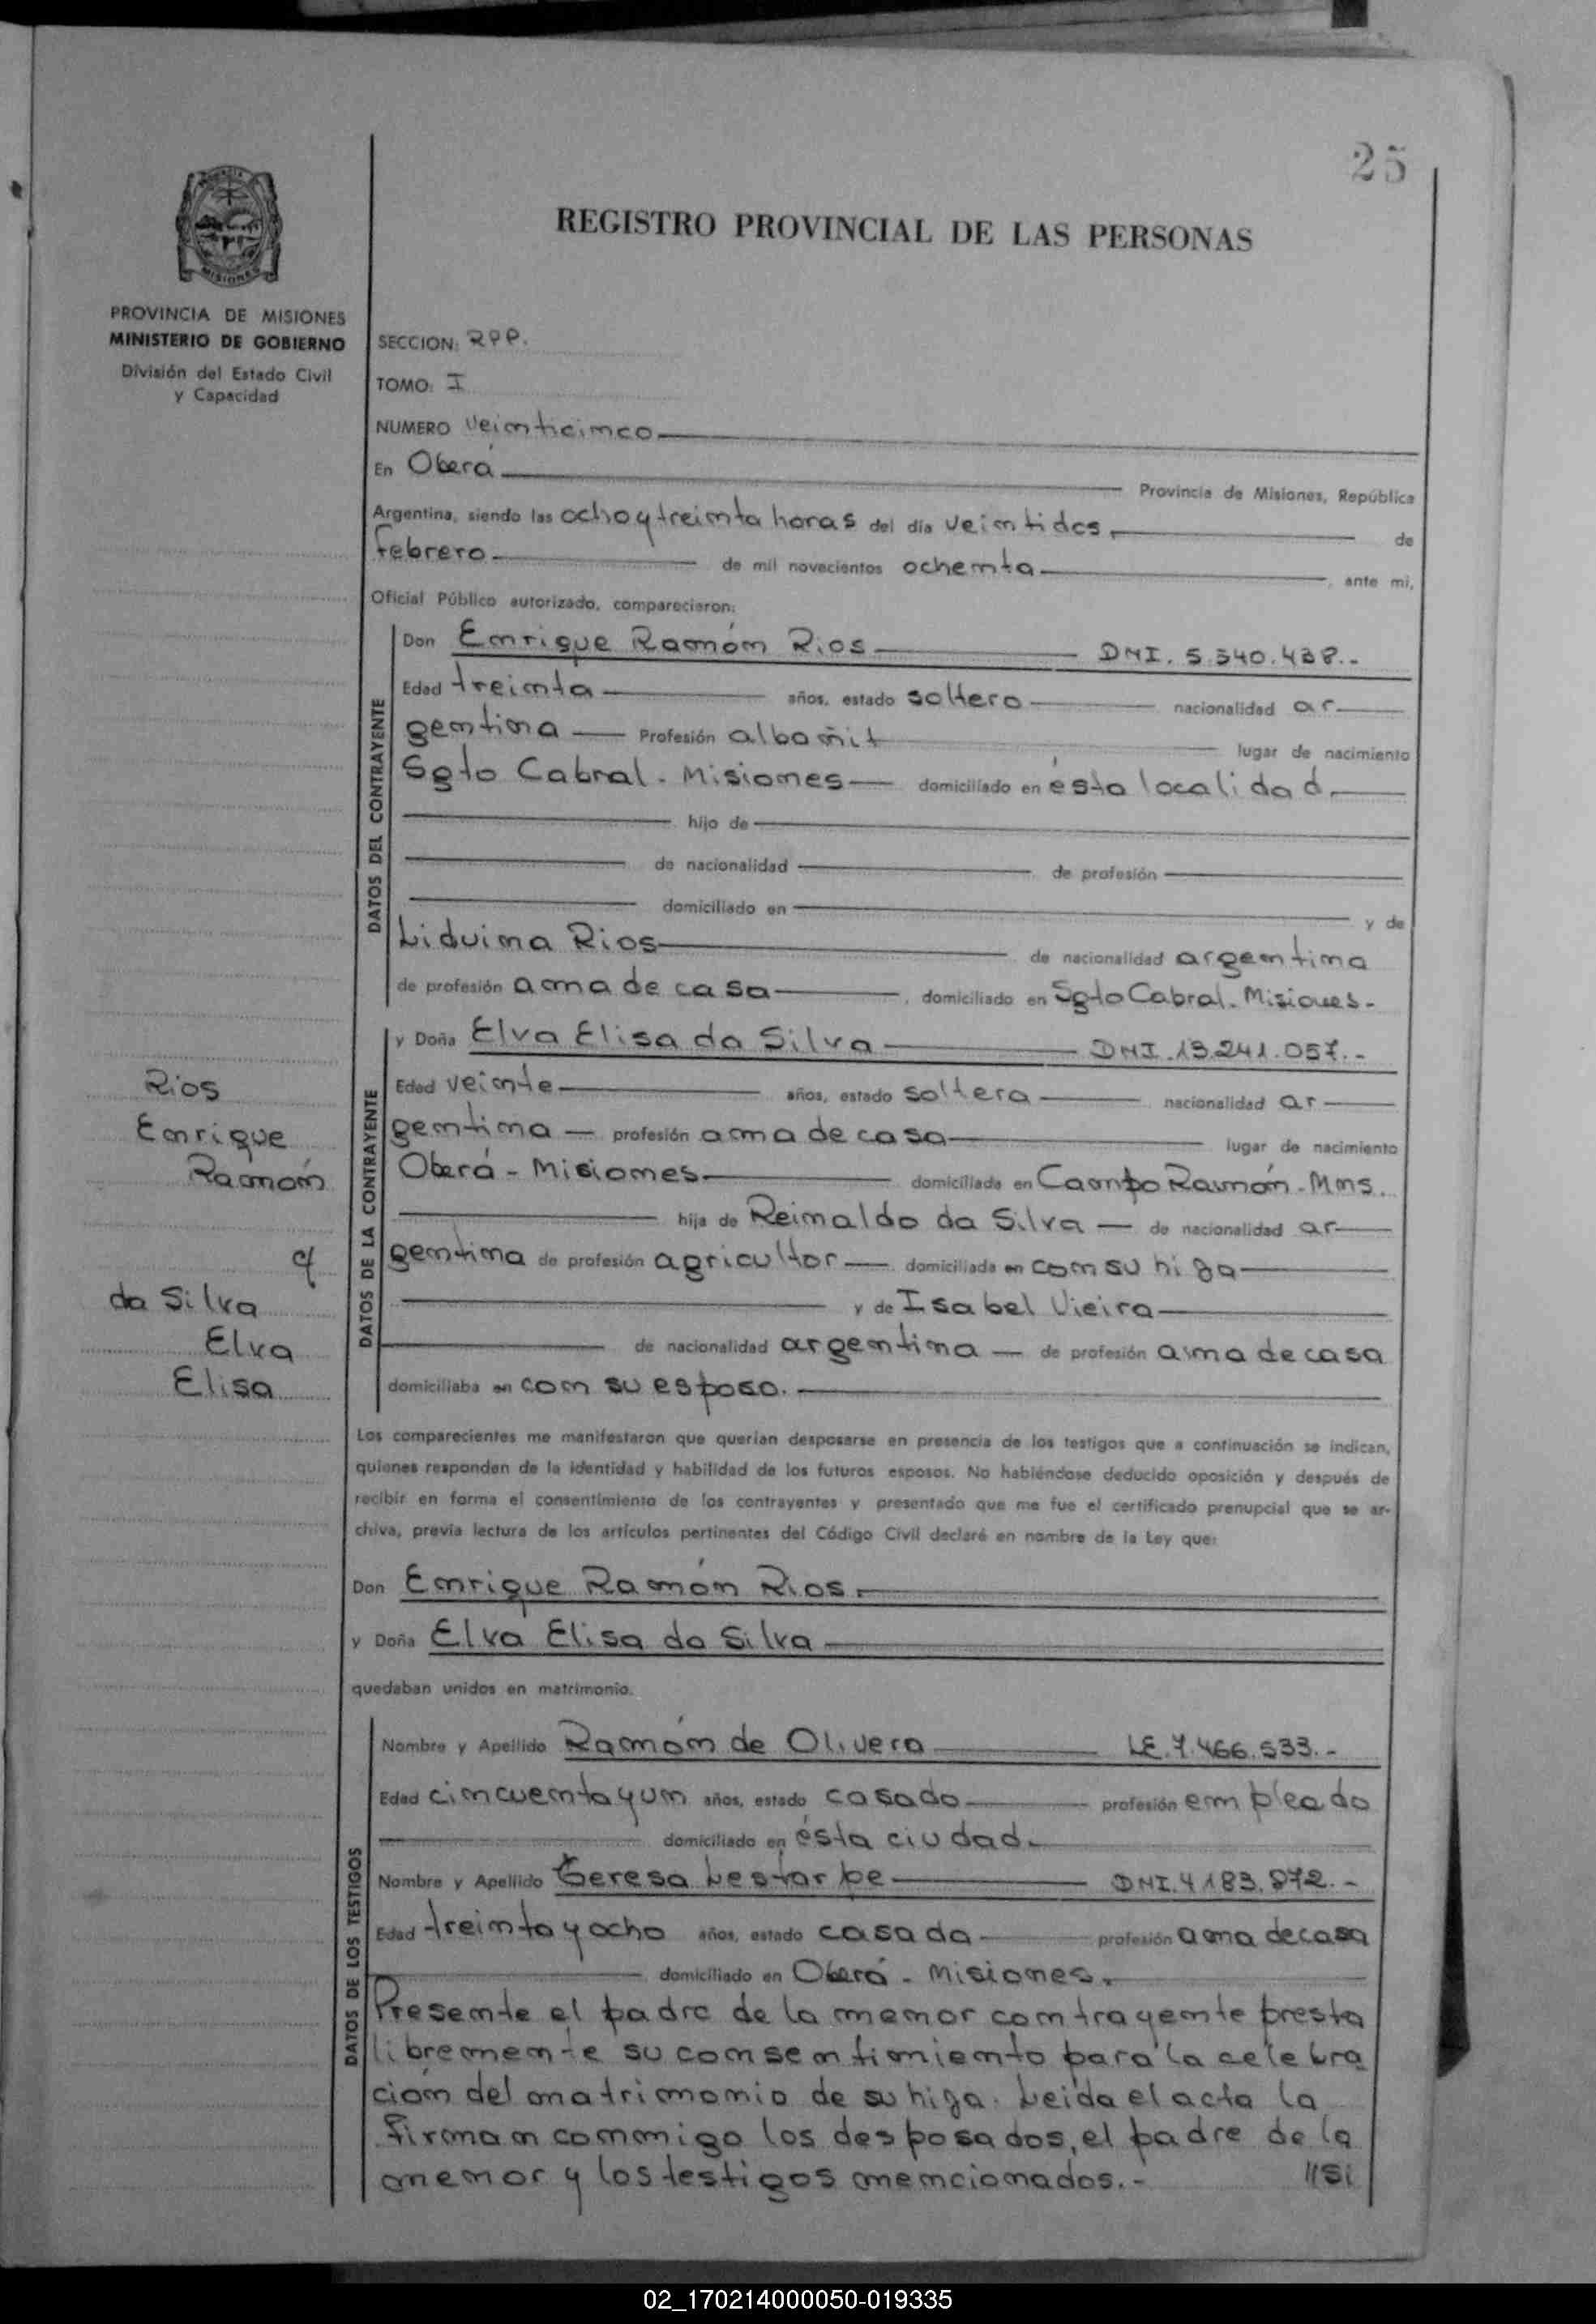 25
REGISTRO PROVINCIAL DE LAS PERSONAS
MISIONES
PROVINCIA DE MISIONES
MINISTERIO DE GOBIERNO
División del Estado Civil
y Capacidad
SECCION: RPP.
TOMO: I
NUMERO Veinticinco
En Oberá Provincia de Misiones, República
Argentina, siendo las ocho y treinta horas del día veintidos, de
febrero de mil novecientos ochenta, ante mi,
Oficial Público autorizado, comparecieron:
DATOS DEL CONTRAYENTE
Don Enrique Ramón Rios DNI. 5.540.438.-
Edad treinta años, estado soltero nacionalidad ar
gentina Profesión albañil lugar de nacimiento
Sgto Cabral. Misiones domiciliado en ésta localidad.
hijo de
de nacionalidad de profesión
domiciliado en y de
Liduina Rios de nacionalidad argentina
de profesión ama de casa, domiciliado en Sgto Cabral. Misiones-
DATOS DE LA CONTRAYENTE
y Doña Elva Elisa da Silva DNI.13.241.057.-
Edad veinte años, estado soltera nacionalidad ar
gentina profesión ama de casa lugar de nacimiento
Oberá - Misiones domiciliada en Campo Ramón - Mns.
hija de Reinaldo da Silva de nacionalidad ar
gentina de profesión agricultor domiciliada en con su hija
y de Isabel Vieira
de nacionalidad argentina de profesión ama de casa
domiciliaba en con su esposo.
Rios
Enrique
Ramón
c/
da Silva
Elva
Elisa
Los comparecientes me manifestaron que querían desposarse en presencia de los testigos que a continuación se indican,
quienes responden de la identidad y habilidad de los futuros esposos. No habiéndose deducido oposición y después de
recibir en forma el consentimiento de los contrayentes y presentado que me fue el certificado prenupcial que se ar-
chiva, previa lectura de los artículos pertinentes del Código Civil declaré en nombre de la Ley que:
Don Enrique Ramón Rios.
y Doña Elva Elisa da Silva
quedaban unidos en matrimonio.
DATOS DE LOS TESTIGOS
Nombre y Apellido Ramón de Olivera LE.7.466.533.-
Edad cincuenta y un años, estado casado profesión empleado
domiciliado en ésta ciudad.
Nombre y Apellido Teresa DNI.4183.972.-
Edad treinta y ocho años, estado casada profesión ama de casa
domiciliado en Oberá - Misiones.
Presente el padre de la menor contrayente presta
libremente su consentimiento para la celebra
ción del matrimonio de su hija. Leida el acta la
firman conmigo los desposados, el padre de la
menor y los testigos mencionados.- //Si
02_170214000050-019335